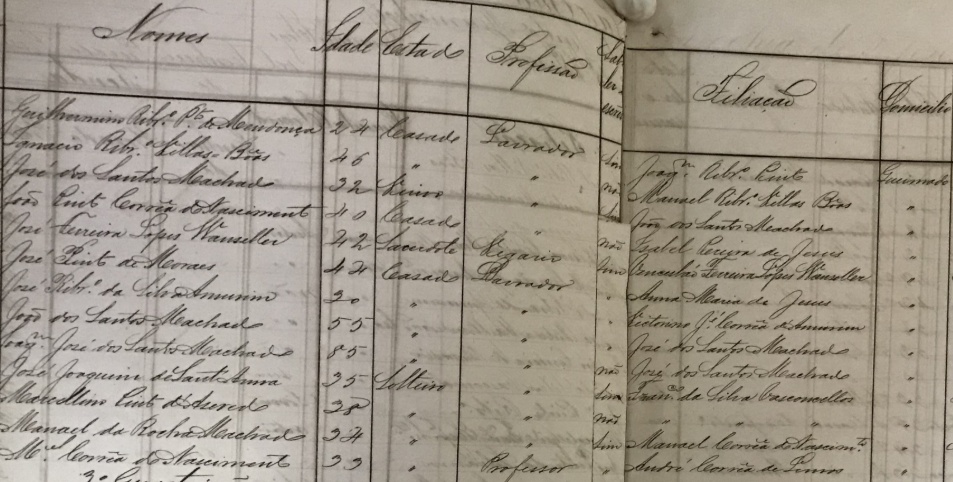 Nomes Idade Estado Profissão Filiação Domicilio
Guilhermino Ribrº Pto de Mendonça 24 Casado Lavrador Joaqm Ribrº Pinto Queimado
Ignacio Ribrº Villas-Bôas 46 " " Manuel Ribrº Villas Bôas "
José dos Santos Machado 32 Viuvo " não João dos Santos Machado "
João Pinto Corrêa do Nascimento 40 Casado " Izabel Pereira de Jesus "
José Ferreira Lopes Wanseller 42 Sacerdote Vigario não Ferreira Lopes Wanseller "
José Pinto de Moraes 44 Casado Lavrador sim Anna Maria de Jesus "
José Ribrº da Silva Amurim 30 " " " Victorino Jº Corrêa d'Amurim "
João dos Santos Machado 55 " " " José dos Santos Machado "
Joaqm José dos Santos Machado 85 " " não José dos Santos Machado "
José Joaquim de Sant'Anna 35 Solteiro " sim Franco da Silva Vasconcellos "
Marcellino Pinto d'Azeredo 38 " " não " " " "
Manuel da Rocha Machado 34 " " sim Manuel Corrêa do Nascimto "
Mel Corrêa do Nascimento 33 " Professor " André Corrêa de Lemos "